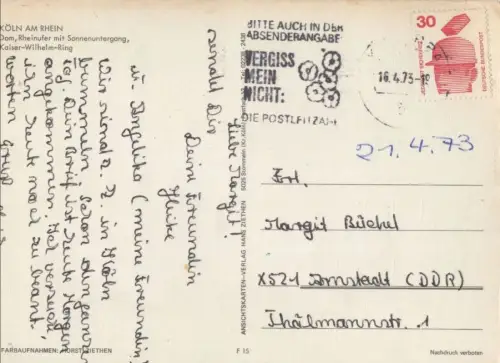 KÖLN AM RHEIN
Dom, Rheinufer mit Sonnenuntergang,
Kaiser-Wilhelm-Ring
Liebe Margit!
Deine Freundin
sendet Dir
u. Angelika (meine Freundin)
Wir sind z. Z. in Köln
bummeln schon den ganzen
Tag. Dein Brief ist heute Morgen
angekommen. Ich versuche
ihn heute noch zu beant-
worten
BITTE AUCH IN DER
ABSENDERANGABE
VERGISS
MEIN
NICHT:
DIE POSTLEITZAHL
16.4.73
30
21.4.73
Frl.
Margit Büchel
X521 Arnstadt (DDR)
Thälmannstr. 1
ANSICHTSKARTEN-VERLAG HANS ZIETHEN
FARBAUFNAHMEN: HORST ZIETHEN
F 15
Nachdruck verboten